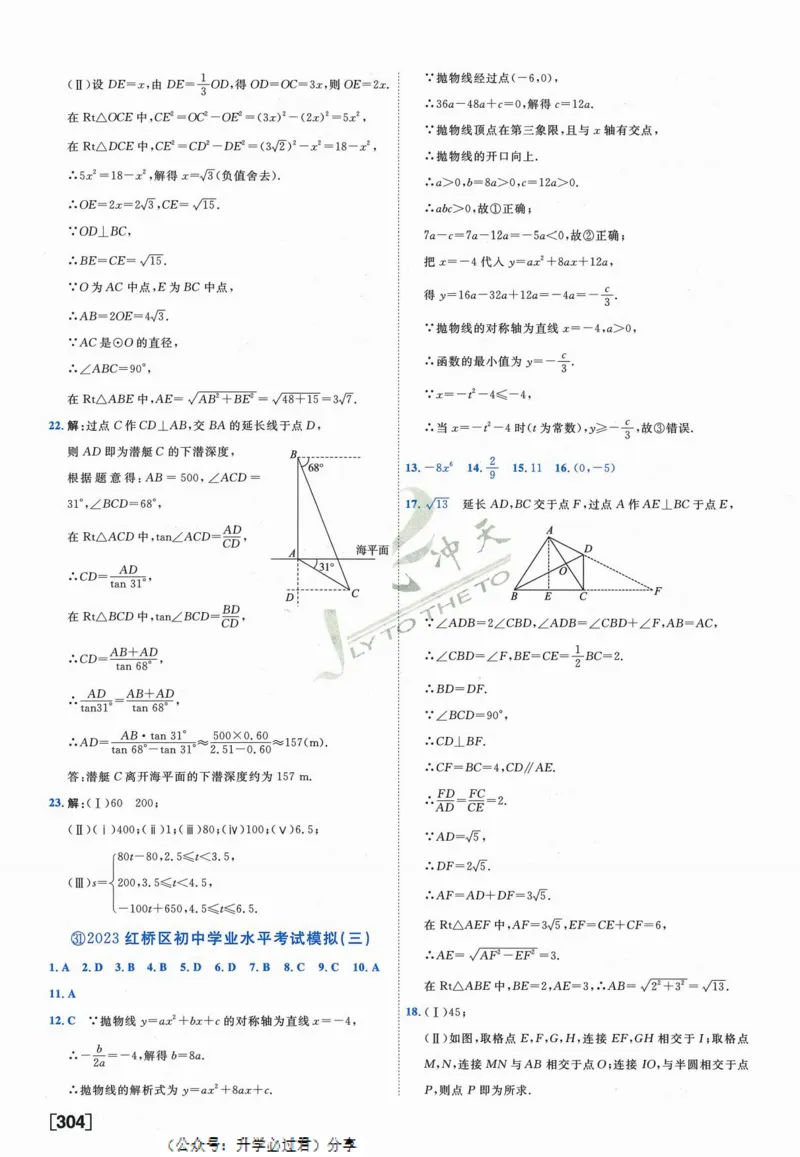 (Ⅱ)设 DE=x,由 DE=1/3 OD,得 OD=OC=3x,则 OE=2x.
在 Rt△OCE 中,CE²=OC²-OE²=(3x)²-(2x)²=5x²,
在 Rt△DCE 中,CE²=CD²-DE²=(3√2)²-x²=18-x²,
∴5x²=18-x²,解得 x=√3(负值舍去).
∴OE=2x=2√3,CE=√15.
∵OD⊥BC,
∴BE=CE=√15.
∵O 为 AC 中点,E 为 BC 中点,
∴AB=2OE=4√3.
∵AC 是⊙O 的直径,
∴∠ABC=90°,
在 Rt△ABE 中,AE=√(AB²+BE²)=√(48+15)=3√7.
22. 解:过点 C 作 CD⊥AB,交 BA 的延长线于点 D,
则 AD 即为潜艇 C 的下潜深度,
根据题意得:AB=500,∠ACD=
31°,∠BCD=68°,
在 Rt△ACD 中,tan∠ACD=AD/CD,
∴CD=AD/tan 31°,
在 Rt△BCD 中,tan∠BCD=BD/CD,
∴CD=(AB+AD)/tan 68°,
∴AD/tan31°=(AB+AD)/tan 68°,
∴AD=(AB·tan 31°)/(tan 68°-tan 31°)≈(500×0.60)/(2.51-0.60)≈157(m).
答:潜艇 C 离开海平面的下潜深度约为 157 m.
B
68°
A
海平面
31°
D
C
23. 解:(Ⅰ)60 200;
(Ⅱ)(ⅰ)400;(ⅱ)1;(ⅲ)80;(ⅳ)100;(Ⅴ)6.5;
(Ⅲ)s={80t-80,2.5≤t<3.5,
200,3.5≤t<4.5,
-100t+650,4.5≤t≤6.5.
㉛2023 红桥区初中学业水平考试模拟(三)
1. A 2. D 3. B 4. B 5. D 6. D 7. B 8. C 9. C 10. A
11. A
12. C ∵抛物线 y=ax²+bx+c 的对称轴为直线 x=-4,
∴-b/2a=-4,解得 b=8a.
∴抛物线的解析式为 y=ax²+8ax+c.
∵抛物线经过点(-6,0),
∴36a-48a+c=0,解得 c=12a.
∵抛物线顶点在第三象限,且与 x 轴有交点,
∴抛物线的开口向上.
∴a>0,b=8a>0,c=12a>0.
∴abc>0,故①正确;
7a-c=7a-12a=-5a<0,故②正确;
把 x=-4 代入 y=ax²+8ax+12a,
得 y=16a-32a+12a=-4a=-c/3.
∵抛物线的对称轴为直线 x=-4,a>0,
∴函数的最小值为 y=-c/3.
∵x=-t²-4≤-4,
∴当 x=-t²-4 时(t 为常数),y≥-c/3,故③错误.
13. -8x⁶ 14. 2/9 15. 11 16. (0,-5)
17. √13 延长 AD,BC 交于点 F,过点 A 作 AE⊥BC 于点 E,
A
D
O
B
E
C
F
∵∠ADB=2∠CBD,∠ADB=∠CBD+∠F,AB=AC,
∴∠CBD=∠F,BE=CE=1/2 BC=2.
∴BD=DF.
∵∠BCD=90°,
∴CD⊥BF.
∴CF=BC=4,CD∥AE.
∴FD/AD=FC/CE=2.
∵AD=√5,
∴DF=2√5.
∴AF=AD+DF=3√5.
在 Rt△AEF 中,AF=3√5,EF=CE+CF=6,
∴AE=√(AF²-EF²)=3.
在 Rt△ABE 中,BE=2,AE=3,∴AB=√(2²+3²)=√13.
18. (Ⅰ)45;
(Ⅱ)如图,取格点 E,F,G,H,连接 EF,GH 相交于 I;取格点
M,N,连接 MN 与 AB 相交于点 O;连接 IO,与半圆相交于点
P,则点 P 即为所求.
冲天
LY TO THE TO
[304]
(公众号:升学必过君)分享